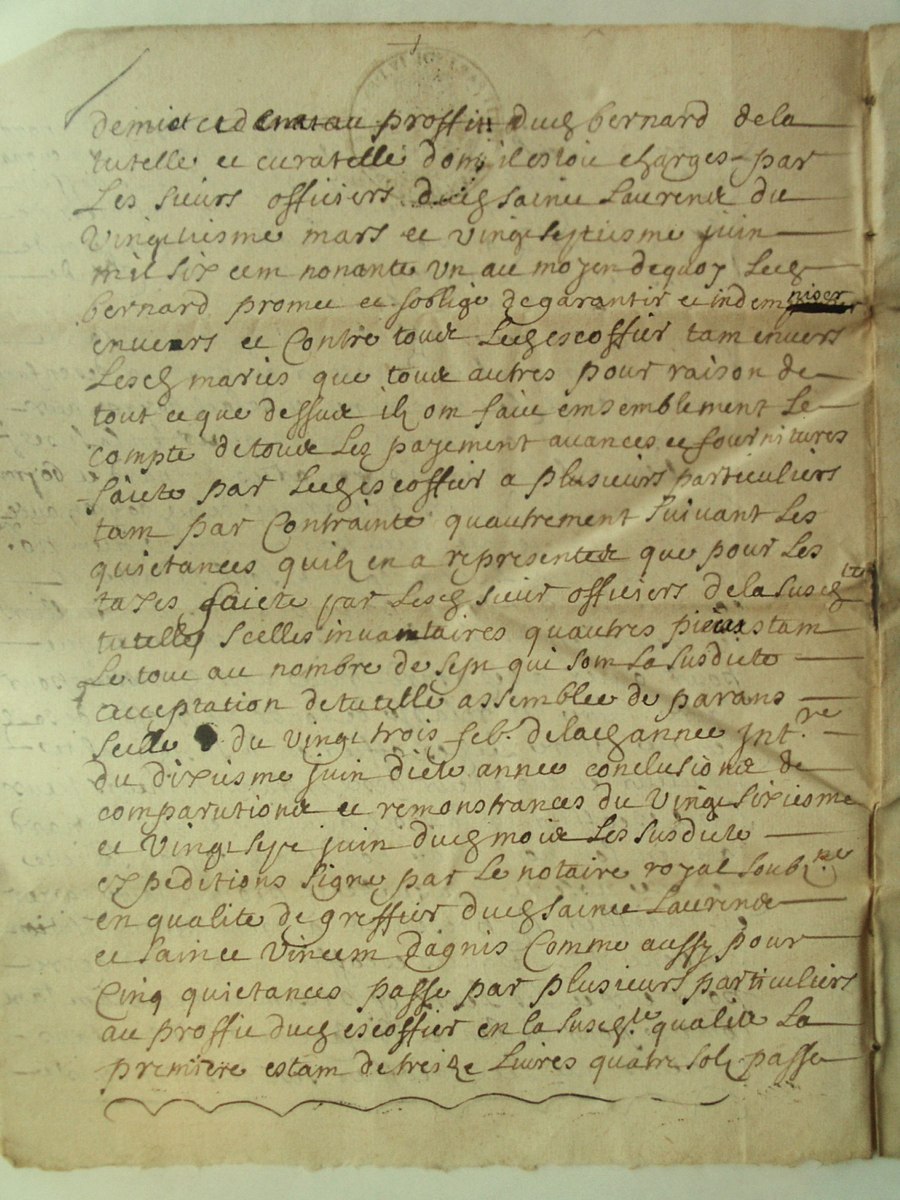 demist et dem au proffit dud bernard de la
tutelle et curatelle dont il estoit charges par
Les sieurs officiers dud sainct Laurend du
Vingtiesme mars et vingt septiesme juin
mil six cent nonante un au moyen de quoy Led
bernard promet et soblige de garantir et indemniser
envers et Contre tous Led escoffier tant envers
Lesd maries que tous autres pour raison de
tout ce que dessus ilz ont faict emsemblement Le
compte de tous Les payement avances et fournitures
faicte par Led escoffier a plusieurs particuliers
tant par Contrainte quautrement suivant Les
quictances quil en a representes que pour Les
taxes faicte par Lesd sieur officiers de la susdte
tutelle scelles inventaires quautres pieces tant
Le tout au nombre de sept qui sont La susdicte
acceptation de tutelle assemblee de parans
scelle du vingt trois feb. de lad annee Int.re
du dixiesme juin dicte annee conclusions de
comparutions et remonstrances du vingt sixiesme
et vingt sept juin dud mois Les susdicte
expeditions signe par Le notaire royal soubz.ne
en qualite de greffier dud sainct Laurend
et sainct Vincent Dagnis Comme aussy pour
Cinq quictances passe par plusieurs particuliers
au proffit dud escoffier en la susd.te qualite La
premiere estant de treize Livres quatre solz passe